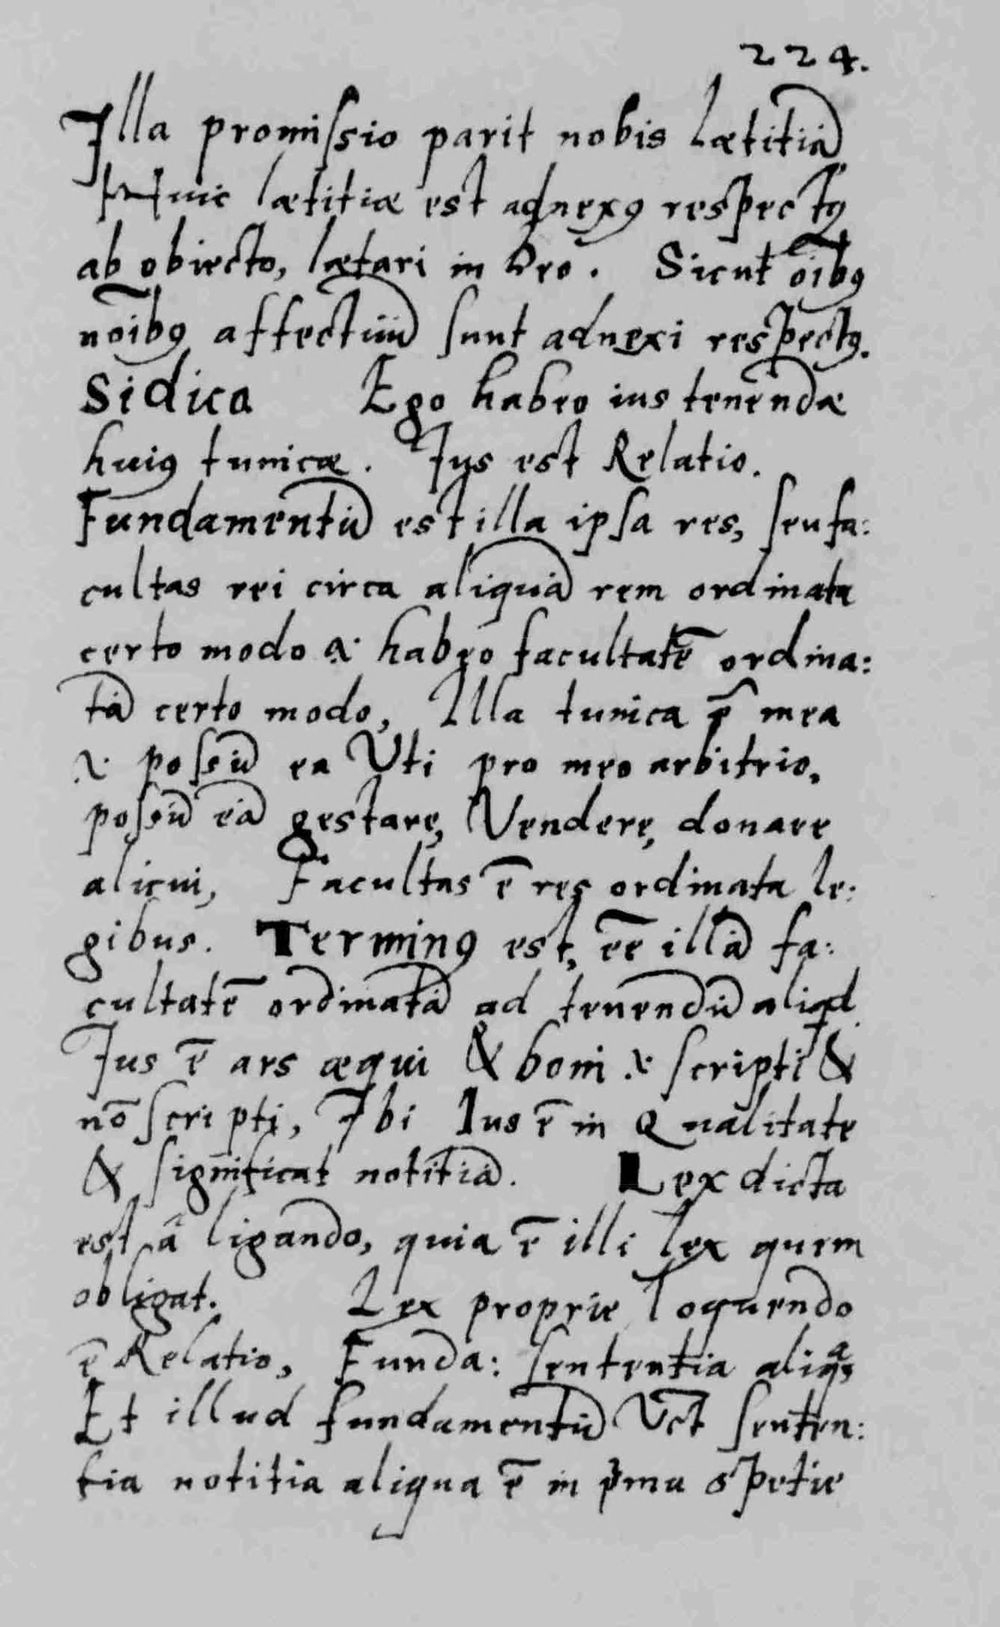 224.
Illa promissio parit nobis lætitiã
Huic lætitiæ est adnexꝰ respectꝰ
ab obiecto, lætari in Deo. Sicut õibꝰ
nõibꝰ affectuũ sunt adnexi respectꝰ.
Si dico Ego habeo ius tenendæ
huiꝰ tunicæ. Jus est Relatio.
Fundamentũ est illa ipsa res, seu fa:
cultas rei circa aliquã rem ordinata
certo modo .i. habeo facultatẽ ordina:
tã certo modo, Illa tunica ẽ mea
.i. possũ ea Uti pro meo arbitrio,
possũ eã gestare, Vendere, donare
alicui, Facultas ẽ res ordinata le:
gibus. Terminꝰ est, ẽe illã fa:
cultatẽ ordinatã ad tenendũ aliqd
Jus ẽ ars æqui & boni .i. scripti &
nõ scripti, Ibi Ius ẽ in Qualitate
& significat notitiã. Lex dicta
est â ligando, quia ẽ illi lex quem
obligat. Lex proprie loquendo
ẽ Relatio, Funda: sententia aliqᵃ,
Et illud fundamentũ Uct senten:
tia notitia aliqua ẽ in pͥma spetie